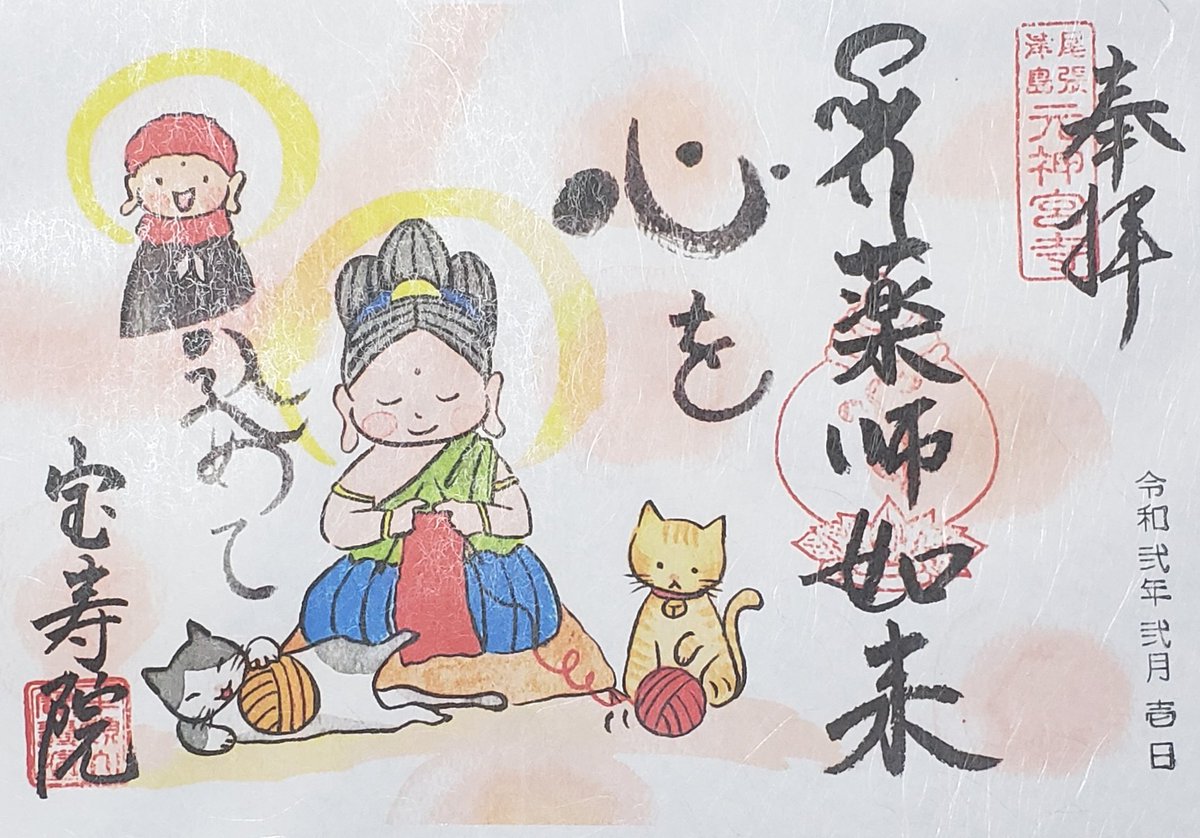 奉拝
尾張
津島
元神宮寺
薬師如来
心を
込めて
宝寿院
令和弐年弐月壱日